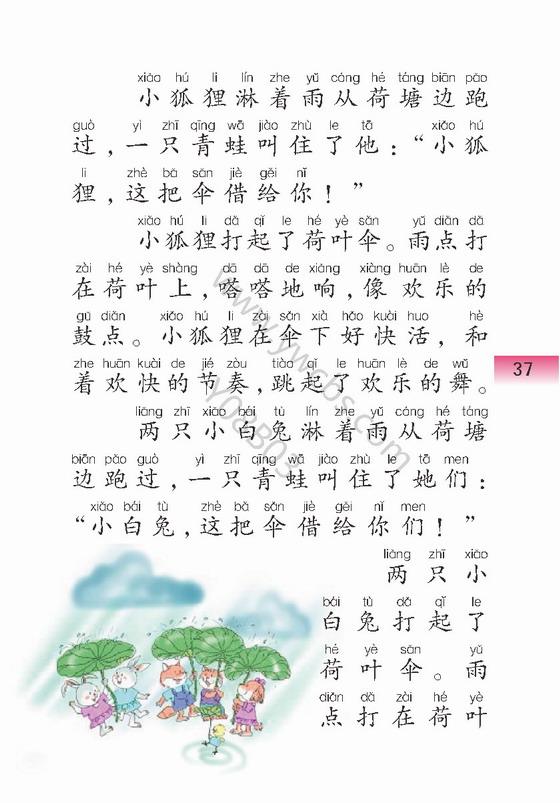 xiǎo hú li lín zhe yǔ cóng hé táng biān pǎo
小狐狸淋着雨从荷塘边跑
guò yì zhī qīng wā jiào zhù le tā xiǎo hú
过，一只青蛙叫住了他：“小狐
li zhè bǎ sǎn jiè gěi nǐ
狸，这把伞借给你！”
xiǎo hú li dǎ qǐ le hé yè sǎn yǔ diǎn dǎ
小狐狸打起了荷叶伞。雨点打
zài hé yè shàng dā dā de xiǎng xiàng huān lè de
在荷叶上，嗒嗒地响，像欢乐的
gǔ diǎn xiǎo hú li zài sǎn xià hǎo kuài huo hè
鼓点。小狐狸在伞下好快活，和
zhe huān kuài de jié zòu tiào qǐ le huān lè de wǔ
着欢快的节奏，跳起了欢乐的舞。
37
liǎng zhī xiǎo bái tù lín zhe yǔ cóng hé táng
两只小白兔淋着雨从荷塘
biān pǎo guò yì zhī qīng wā jiào zhù le tā men
边跑过，一只青蛙叫住了她们：
xiǎo bái tù zhè bǎ sǎn jiè gěi nǐ men
“小白兔，这把伞借给你们！”
liǎng zhī xiǎo
两只小
bái tù dǎ qǐ le
白兔打起了
hé yè sǎn yǔ
荷叶伞。雨
diǎn dǎ zài hé yè
点打在荷叶
www.ywcbs.com
Y08B03